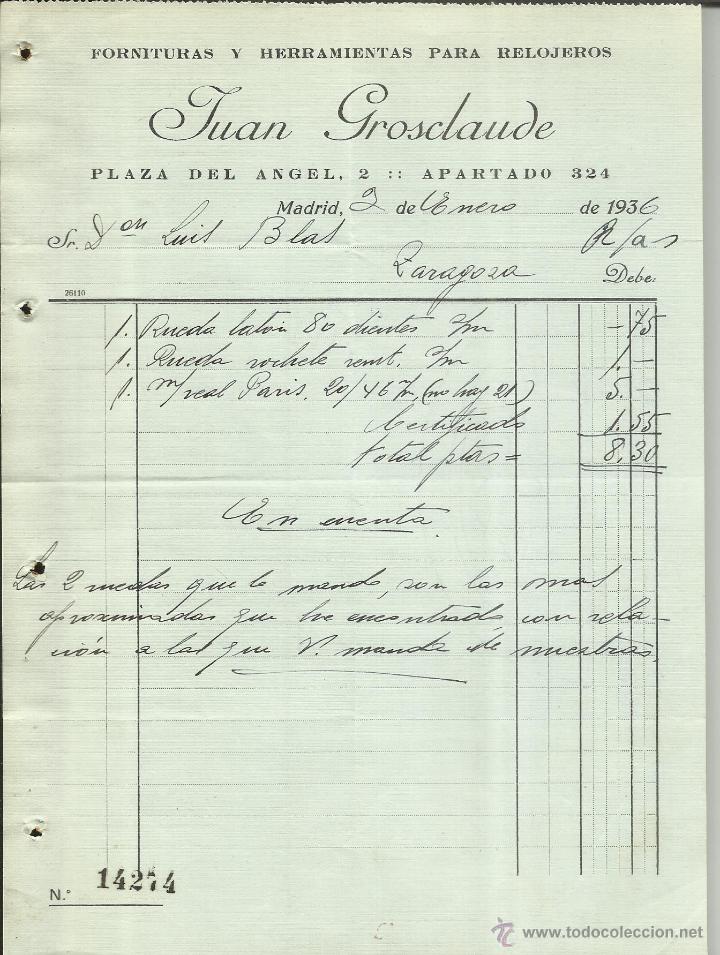 FORNITURAS Y HERRAMIENTAS PARA RELOJEROS
Juan Grosclaude
PLAZA DEL ANGEL, 2 :: APARTADO 324
Madrid, 2 de Enero de 1936
Sr. Don Luis Blas R/as
Zaragoza Debe:
26110
1. Rueda latón 80 dientes s/m - 75
1. Rueda rochete remt. s/m 1. -
1. m/real Paris, 20/46 (no hay 21) 5. -
Certificado 1.55
total ptas = 8.30
En cuenta
Las 2 ruedas que le mando, son las mas
aproximadas que he encontrado con rela-
ción a las que V. manda de muestras.
N.° 14274
www.todocoleccion.net